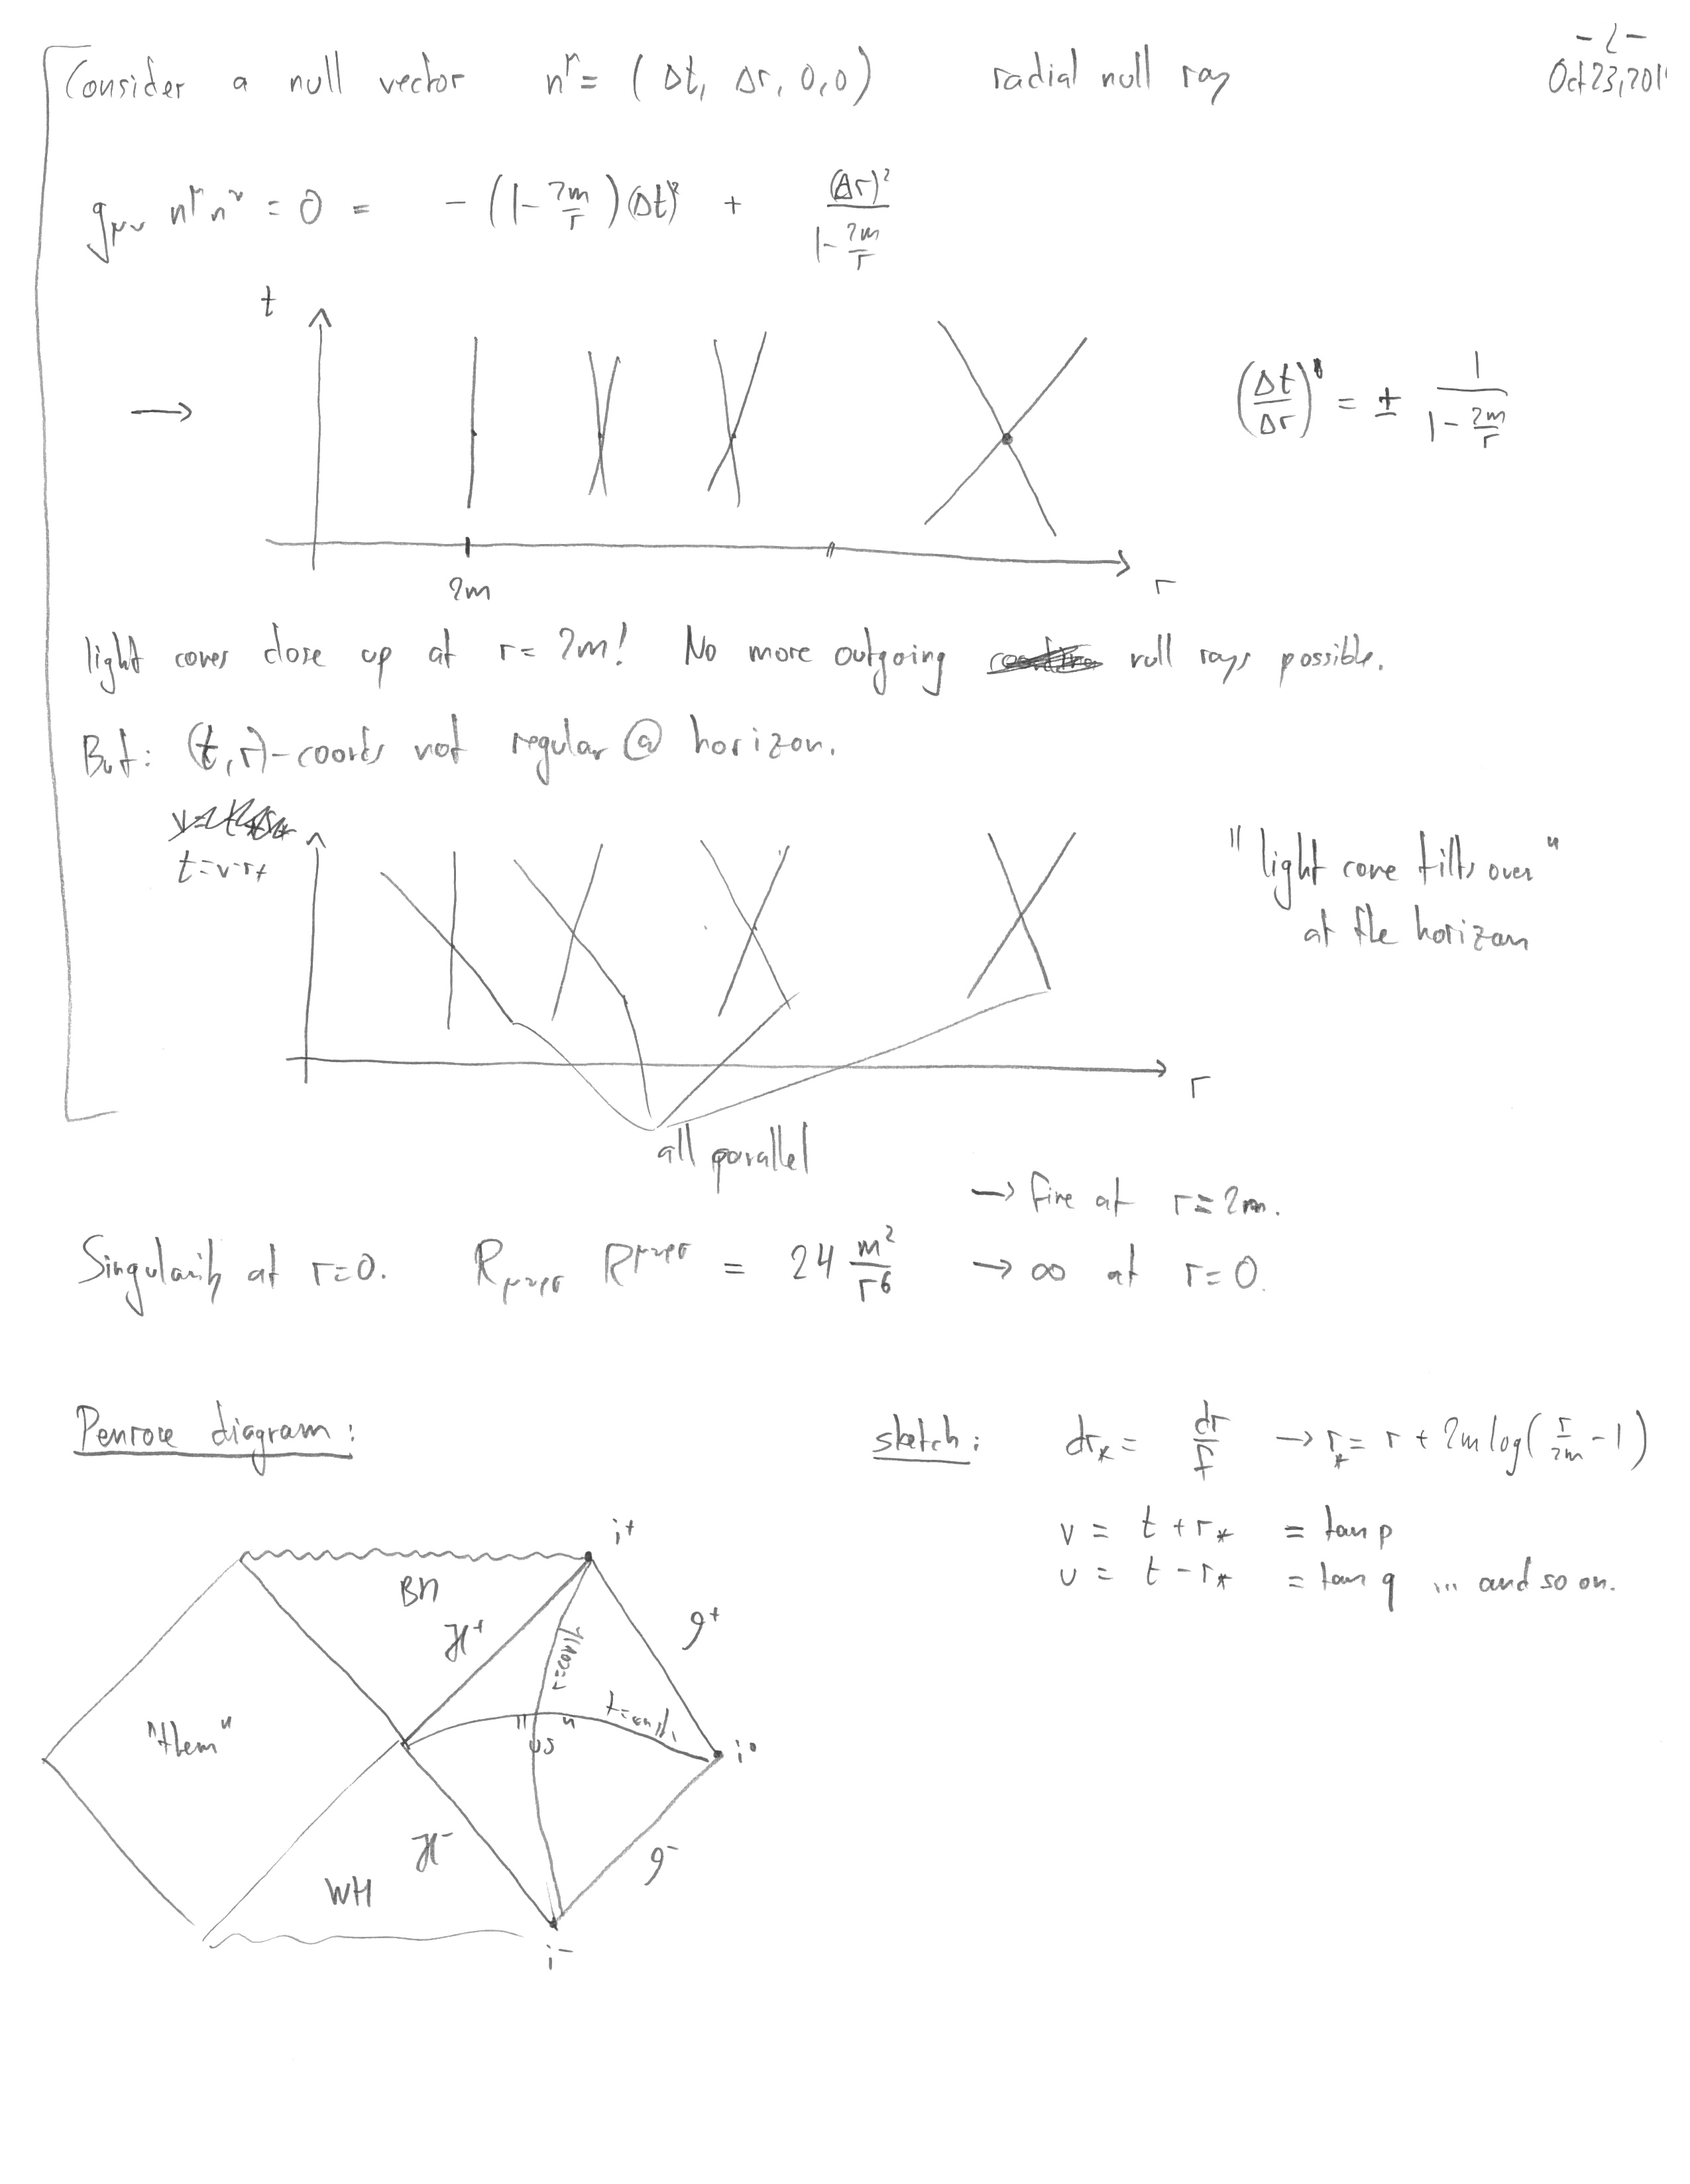 - 2 -
Consider a null vector n^μ = ( Δt, Δr, 0,0 ) radial null ray Oct 23, 201
g_μν n^μ n^ν = 0 = - (1 - 2m/r) (Δt)² + (Δr)² / (1 - 2m/r)
t
→ (Δt/Δr) = ± 1 / (1 - 2m/r)
2m r
light cones close up at r = 2m! No more outgoing null rays possible.
But: (t,r)-coords not regular @ horizon.
t = v-r*
"light cone tilts over"
at the horizon
r
all parallel
→ fine at r = 2m.
Singularity at r=0. R_μνρσ R^μνρσ = 24 m²/r⁶ → ∞ at r=0.
Penrose diagram: sketch: dr* = dr/f → r* = r + 2m log( r/2m - 1 )
v = t + r* = tan p
u = t - r* = tan q ... and so on.
i⁺
BH
H⁺ 𝓘⁺
r=const
"them" t=const.
"us" i⁰
H⁻ 𝓘⁻
WH
i⁻